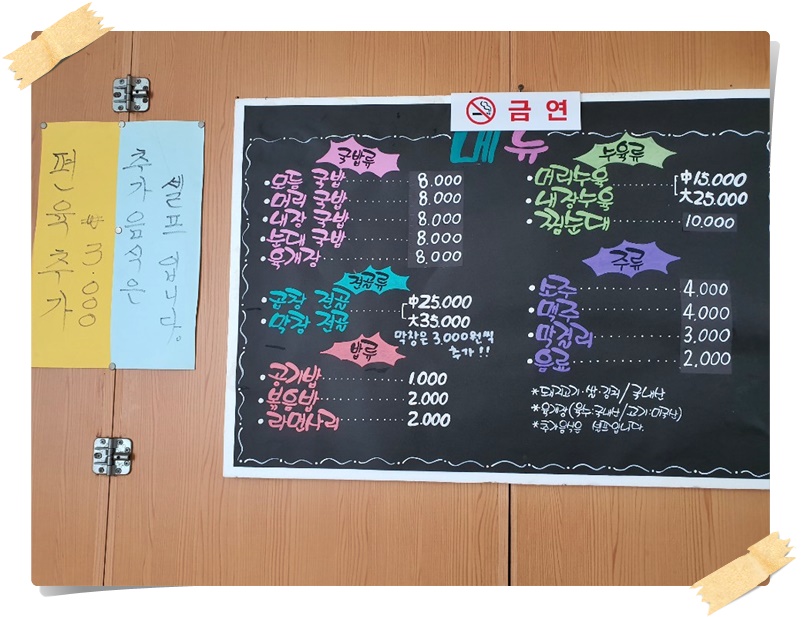 편육추가
₩3.000
추가음식은
셀프입니다.
금연
메뉴
국밥류
•모듬 국밥 8.000
•머리 국밥 8.000
•내장 국밥 8.000
•순대 국밥 8.000
•육개장 8.000
전골류
•곱창 전골 中25.000
•막창 전골 大35.000
막창은 3,000원씩
추가!!
밥류
•공기밥 1.000
•볶음밥 2.000
•라면사리 2.000
수육류
•머리수육 中15.000
•내장수육 大25.000
•찜순대 10.000
주류
•소주 4.000
•맥주 4.000
•막걸리 3,000
•음료 2,000
*돼지고기·쌀·김치/국내산
*육개장(육수:국내산/고기:미국산)
*추가음식은 셀프입니다.